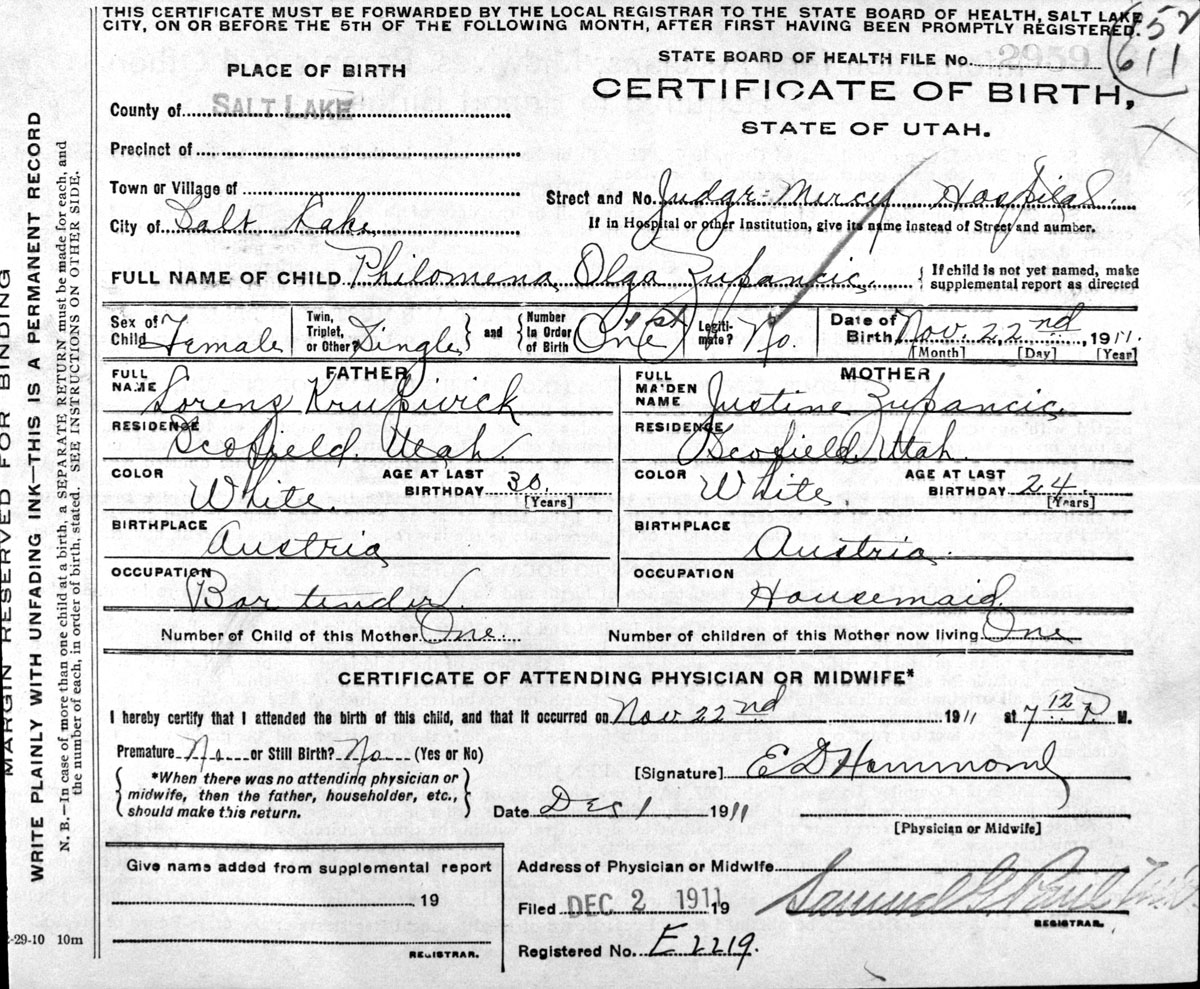 THIS CERTIFICATE MUST BE FORWARDED BY THE LOCAL REGISTRAR TO THE STATE BOARD OF HEALTH, SALT LAKE
CITY, ON OR BEFORE THE 5TH OF THE FOLLOWING MONTH, AFTER FIRST HAVING BEEN PROMPTLY REGISTERED.
611
STATE BOARD OF HEALTH FILE No. 2959
PLACE OF BIRTH
CERTIFICATE OF BIRTH,
STATE OF UTAH.
County of SALT LAKE
Precinct of
Town or Village of
Street and No. Judge Mercy Hospital.
City of Salt Lake
If in Hospital or other Institution, give its name instead of Street and number.
FULL NAME OF CHILD Philomena Olga Zupancic. { If child is not yet named, make supplemental report as directed
Sex of Child Female
Twin, Triplet, or Other? Single } and { Number in Order of Birth One 1st
Legiti-mate? No.
Date of Birth Nov. 22nd, 1911.
[Month] [Day] [Year]
FATHER
FULL NAME Lorenz Krupivick
RESIDENCE Scofield. Utah.
COLOR White. AGE AT LAST BIRTHDAY 30. [Years]
BIRTHPLACE Austria
OCCUPATION Bar tender.
MOTHER
FULL MAIDEN NAME Justine Zupancic.
RESIDENCE Scofield Utah.
COLOR White. AGE AT LAST BIRTHDAY 24. [Years]
BIRTHPLACE Austria.
OCCUPATION Housemaid.
Number of Child of this Mother One. Number of children of this Mother now living One
CERTIFICATE OF ATTENDING PHYSICIAN OR MIDWIFE*
I hereby certify that I attended the birth of this child, and that it occurred on Nov 22nd 1911 at 7 12 P M.
Premature No or Still Birth? No (Yes or No)
{ *When there was no attending physician or
midwife, then the father, householder, etc.,
should make this return. }
[Signature] E D Hammond
Date Dec 1 1911
[Physician or Midwife]
Give name added from supplemental report
19
REGISTRAR.
Address of Physician or Midwife
Filed DEC 2 1911 19
Samuel G. Paul
REGISTRAR.
Registered No. E2219.
-29-10 10m
MARGIN RESERVED FOR BINDING
WRITE PLAINLY WITH UNFADING INK—THIS IS A PERMANENT RECORD
N. B.—In case of more than one child at a birth, a SEPARATE RETURN must be made for each, and
the number of each, in order of birth, stated. SEE INSTRUCTIONS ON OTHER SIDE.